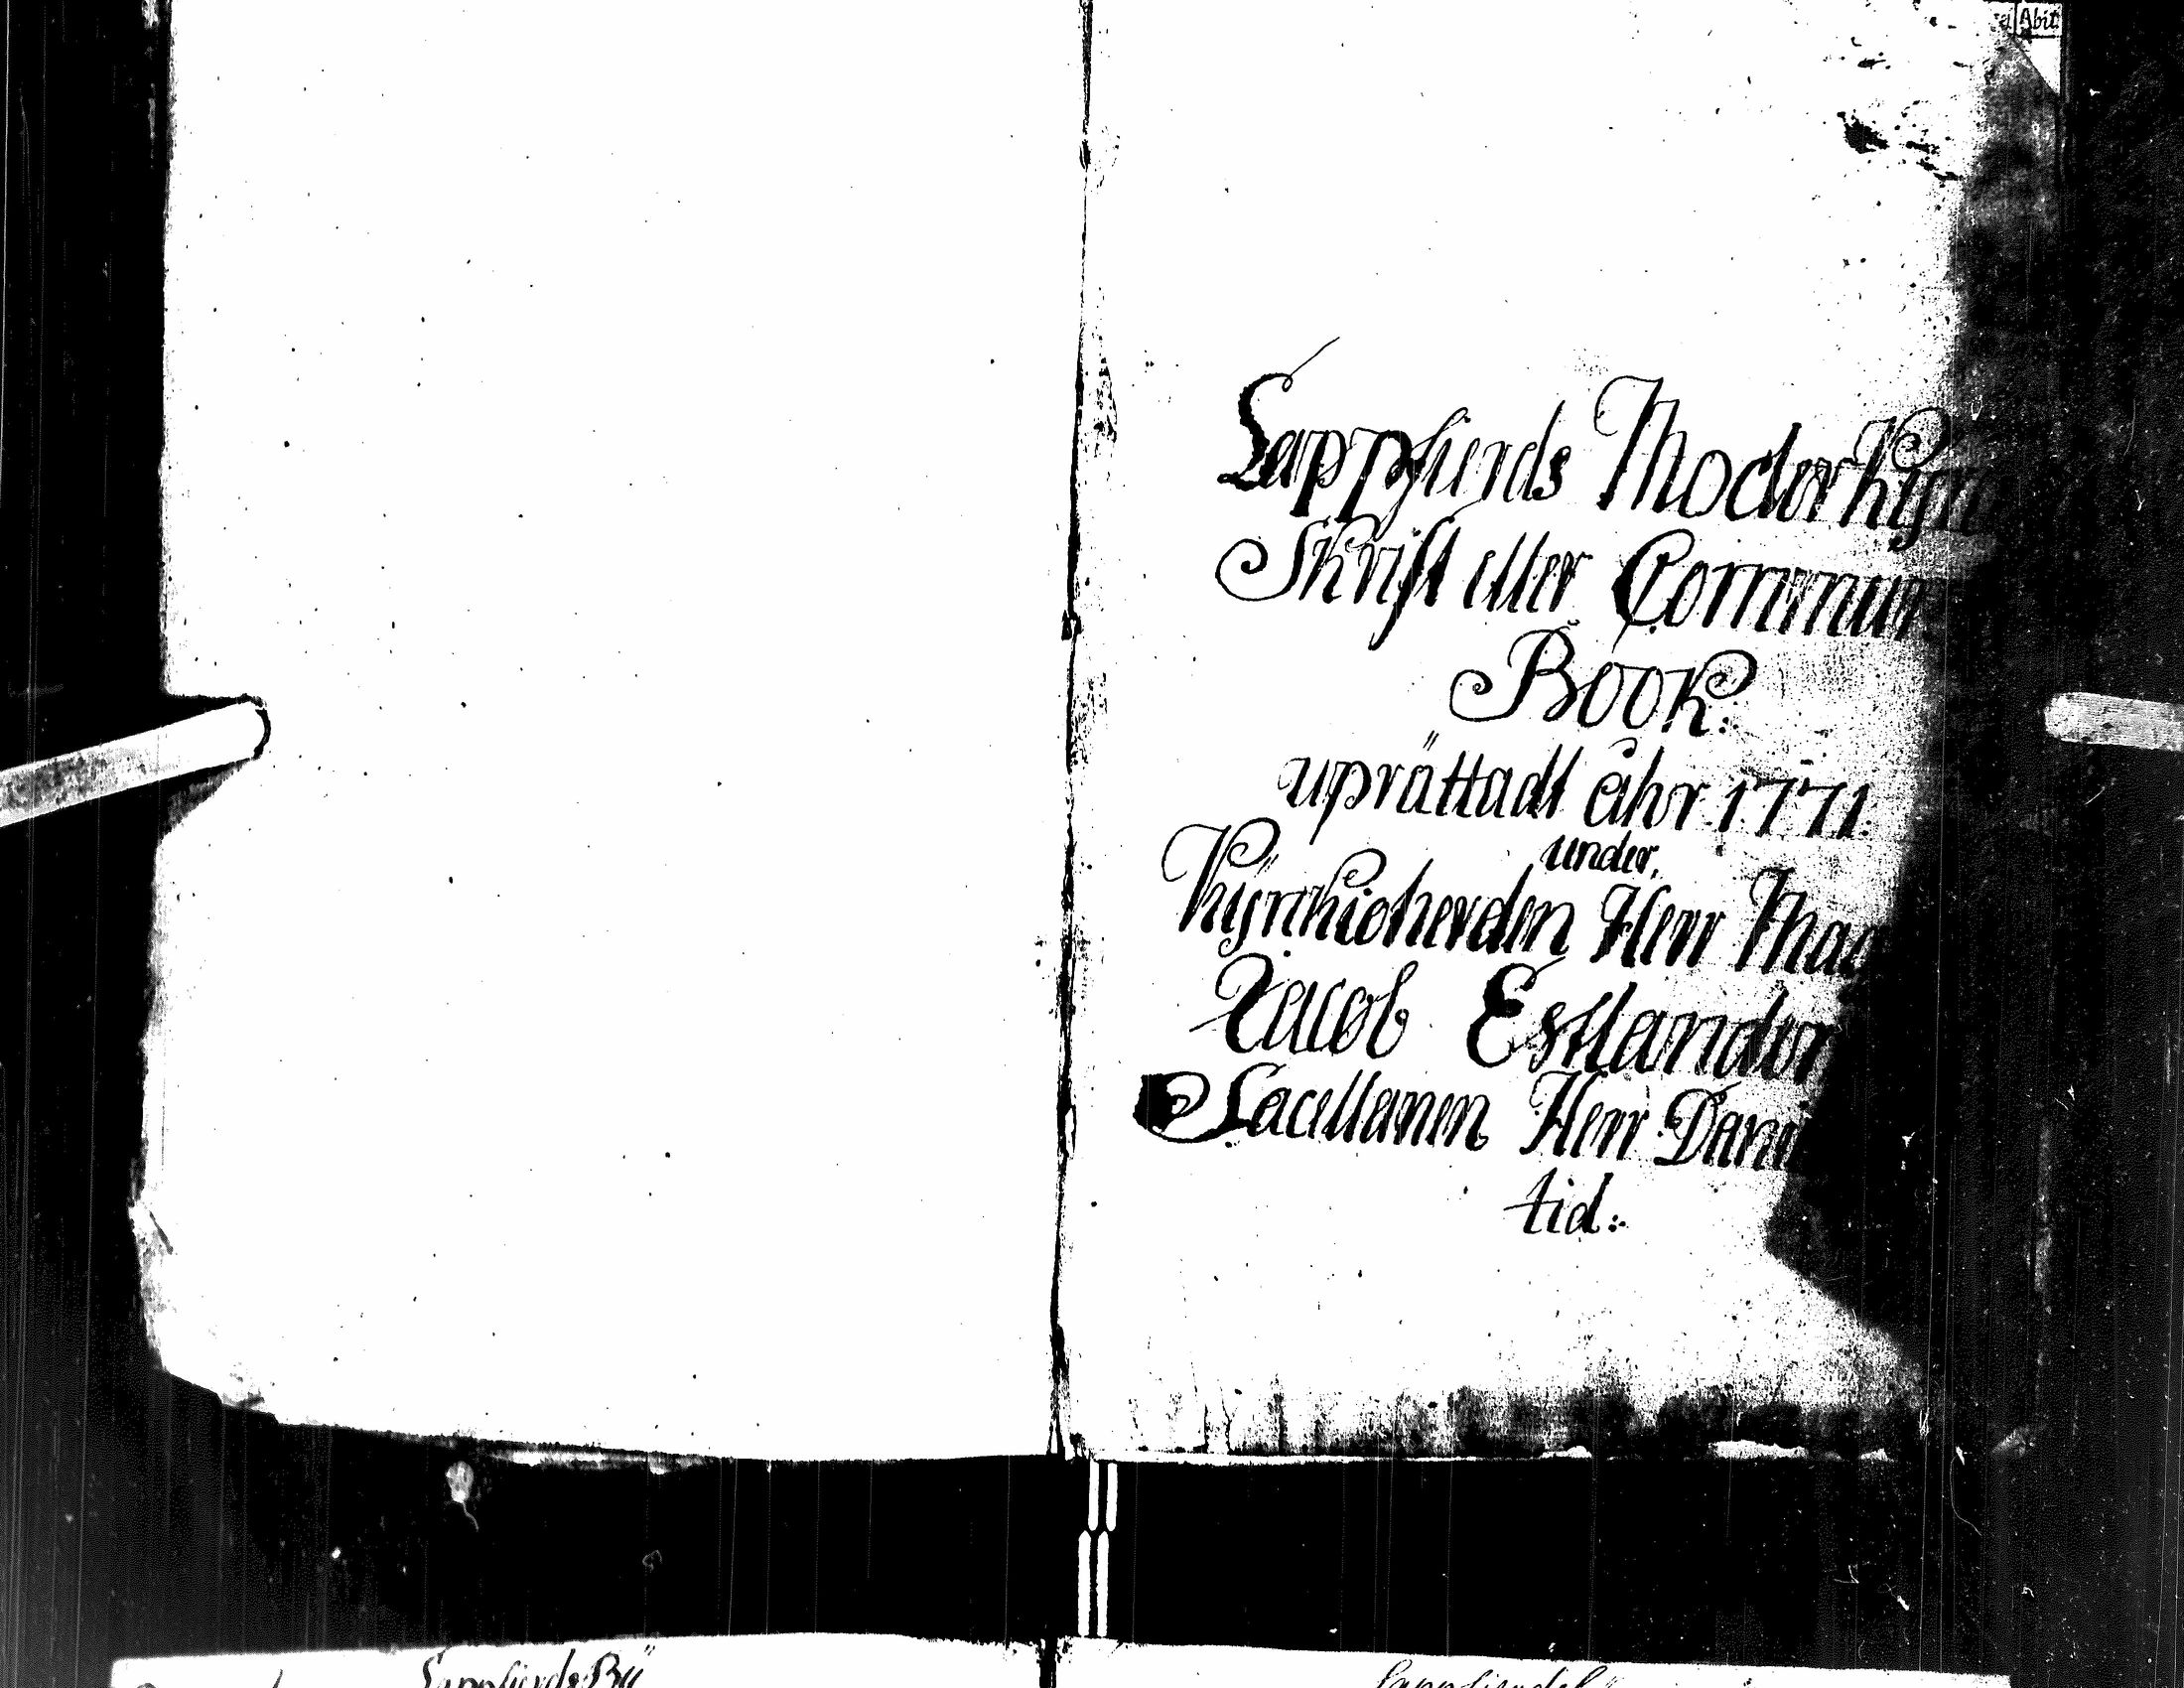 Abit
Lappfierds Moderkyrc
Skrift eller Commun
Book:
uprättadt åhr 1771.
under,
Kÿrckioherden Herr Mag
Jacob Estlander
Sacellanen Herr Dani
tid:
Lappfierds Bÿ